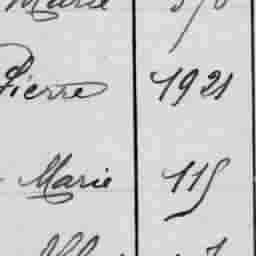 Marie
Pierre 1921
Marie 115